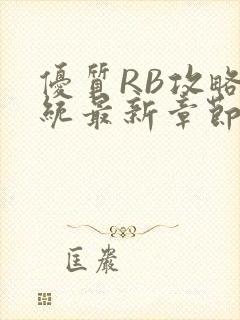 優質RB攻略
統最新章節
匡嚴